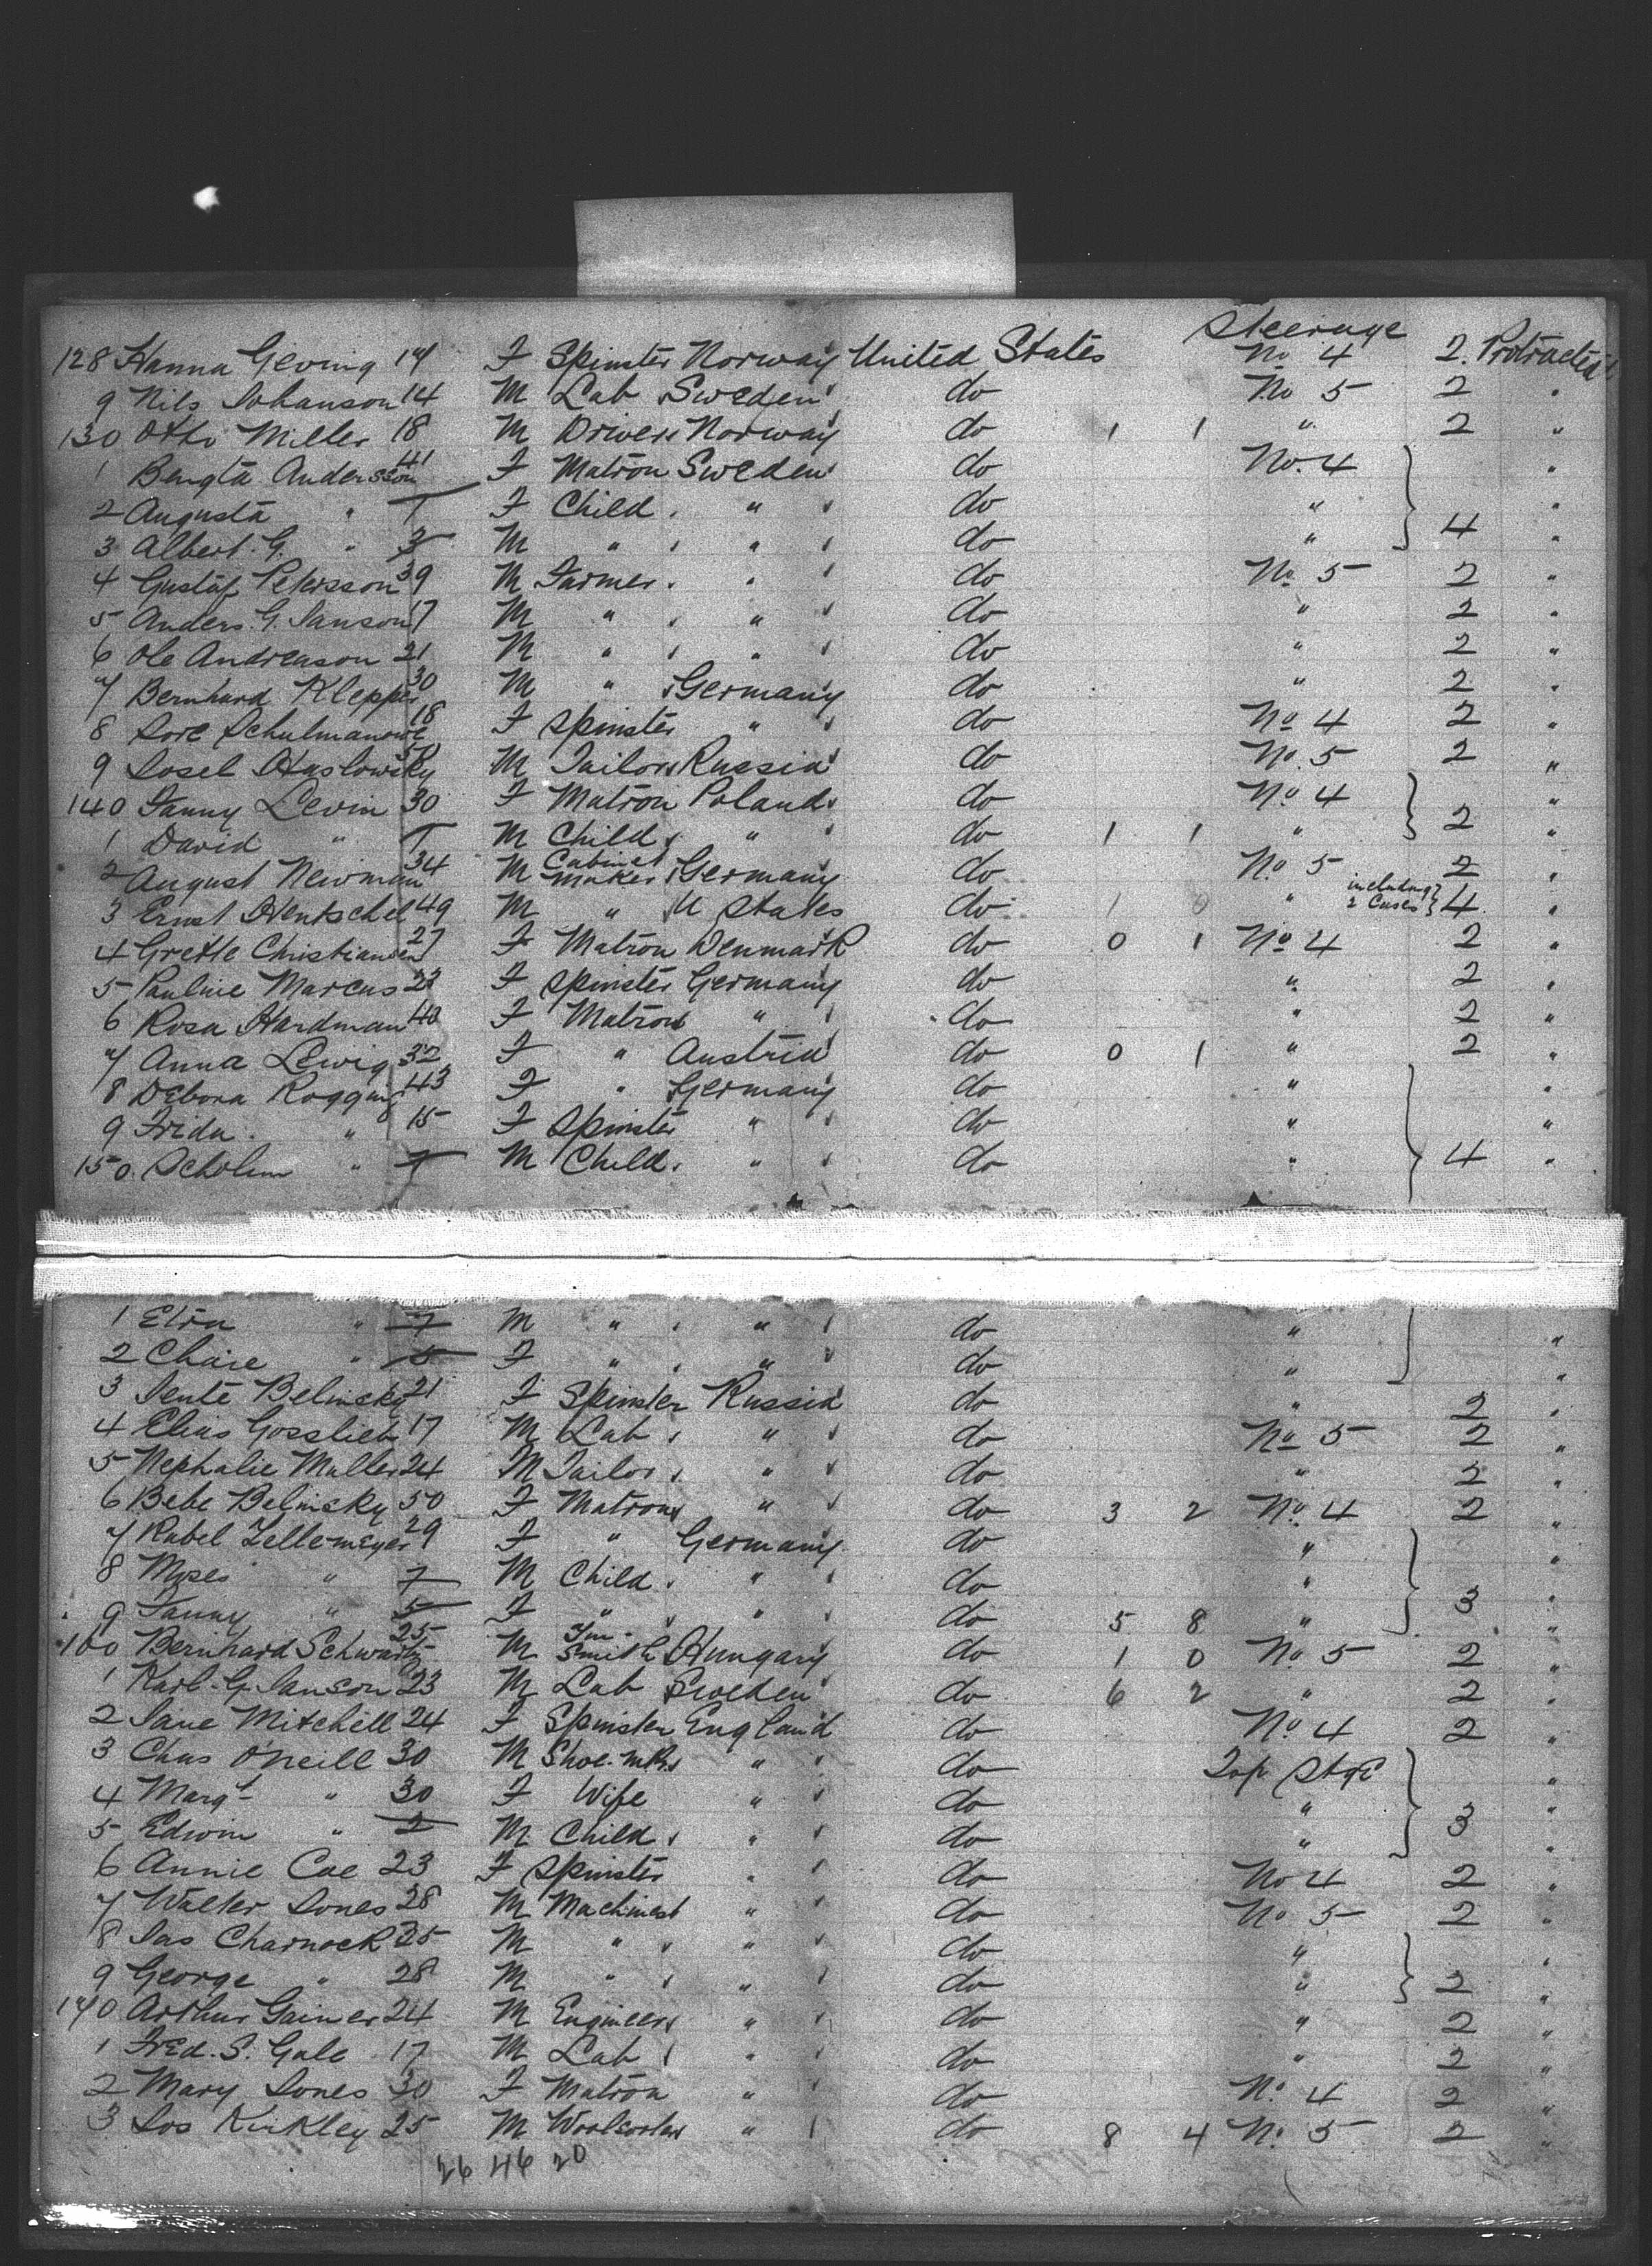 Steerage
128 Hanna Geving 17 F Spinster Norway United States No 4 2. Protracted
9 Nils Johanson 14 M Lab Sweden do No 5 2 "
130 Otto Miller 18 M Driver Norway do 1 1 " 2 "
1 Bengta Andersson 41 F Matron Sweden do No. 4 "
2 Augusta " 7 F Child " do " "
3 Albert. G. " 3 M " " do " 4 "
4 Gustaf Petersson 39 M Farmer " do No 5 2 "
5 Anders. G. Janson 17 M " " do " 2 "
6 Ole Andreason 21 M " " do " 2 "
7 Bernhard Klepper 30 M " Germany do " 2 "
8 Sore Schulmanowe 18 F Spinster " do No 4 2 "
9 Josel Haslowsky M Tailor Russia do No. 5 2 "
140 Fanny Levin 30 F Matron Poland do No 4 "
1 David " M Child " do 1 1 " 2 "
2 August Newman 34 M Cabinet Maker Germany do No. 5 2 "
3 Ernst Hentschel 49 M " U States do 1 0 " including 2 Cases 4 "
4 Grette Christiansen 27 F Matron Denmark do 0 1 No 4 2 "
5 Pauline Marcus 23 F Spinster Germany do " 2 "
6 Rosa Hardman 40 F Matron " do " 2 "
7 Anna Lewig 32 F " Austria do 0 1 " 2 "
8 Debora Roggung 43 F " Germany do " "
9 Frida " 15 F Spinster " do " "
150. Scholem " 9 M Child " do " 4 "
1 Etra " 7 M " " do " "
2 Chaie " 5 F " " do " "
3 Jente Belinsky 21 F Spinster Russia do " 2 "
4 Elias Gosslieb 17 M Lab " do No 5 2 "
5 Nephalie Muller 24 M Tailor " do " 2 "
6 Bebe Belinsky 50 F Matron " do 3 2 No. 4 2 "
7 Rabel Zellemeyer 29 F " Germany do " "
8 Moses " 7 M Child " do " "
9 Fanny " 5 F " " do 5 8 " 3 "
160 Bernhard Schwartz 25 M Tin-Smith Hungary do 1 0 No. 5 2 "
1 Karl. G. Janson 23 M Lab Sweden do 6 2 " 2 "
2 Jane Mitchell 24 F Spinster England do No 4 2 "
3 Chas O'Neill 30 M Shoe-mkr " do Top Stge "
4 Margt " 30 F Wife " do " "
5 Edwin " 2 M Child " do " 3 "
6 Annie Coe 23 F Spinster " do No 4 2 "
7 Walter Jones 28 M Machinest " do No 5 2 "
8 Jas Charnock 25 M " " do " "
9 George " 28 M " " do " 2 "
170 Arthur Gainer 24 M Engineer " do " 2 "
1 Fred. S. Gale 17 M Lab " do " 2 "
2 Mary Jones 30 F Matron " do No. 4 2 "
3 Jos Kirkley 25 M Woolsorter " do 8 4 No. 5 2 "
26 46 20